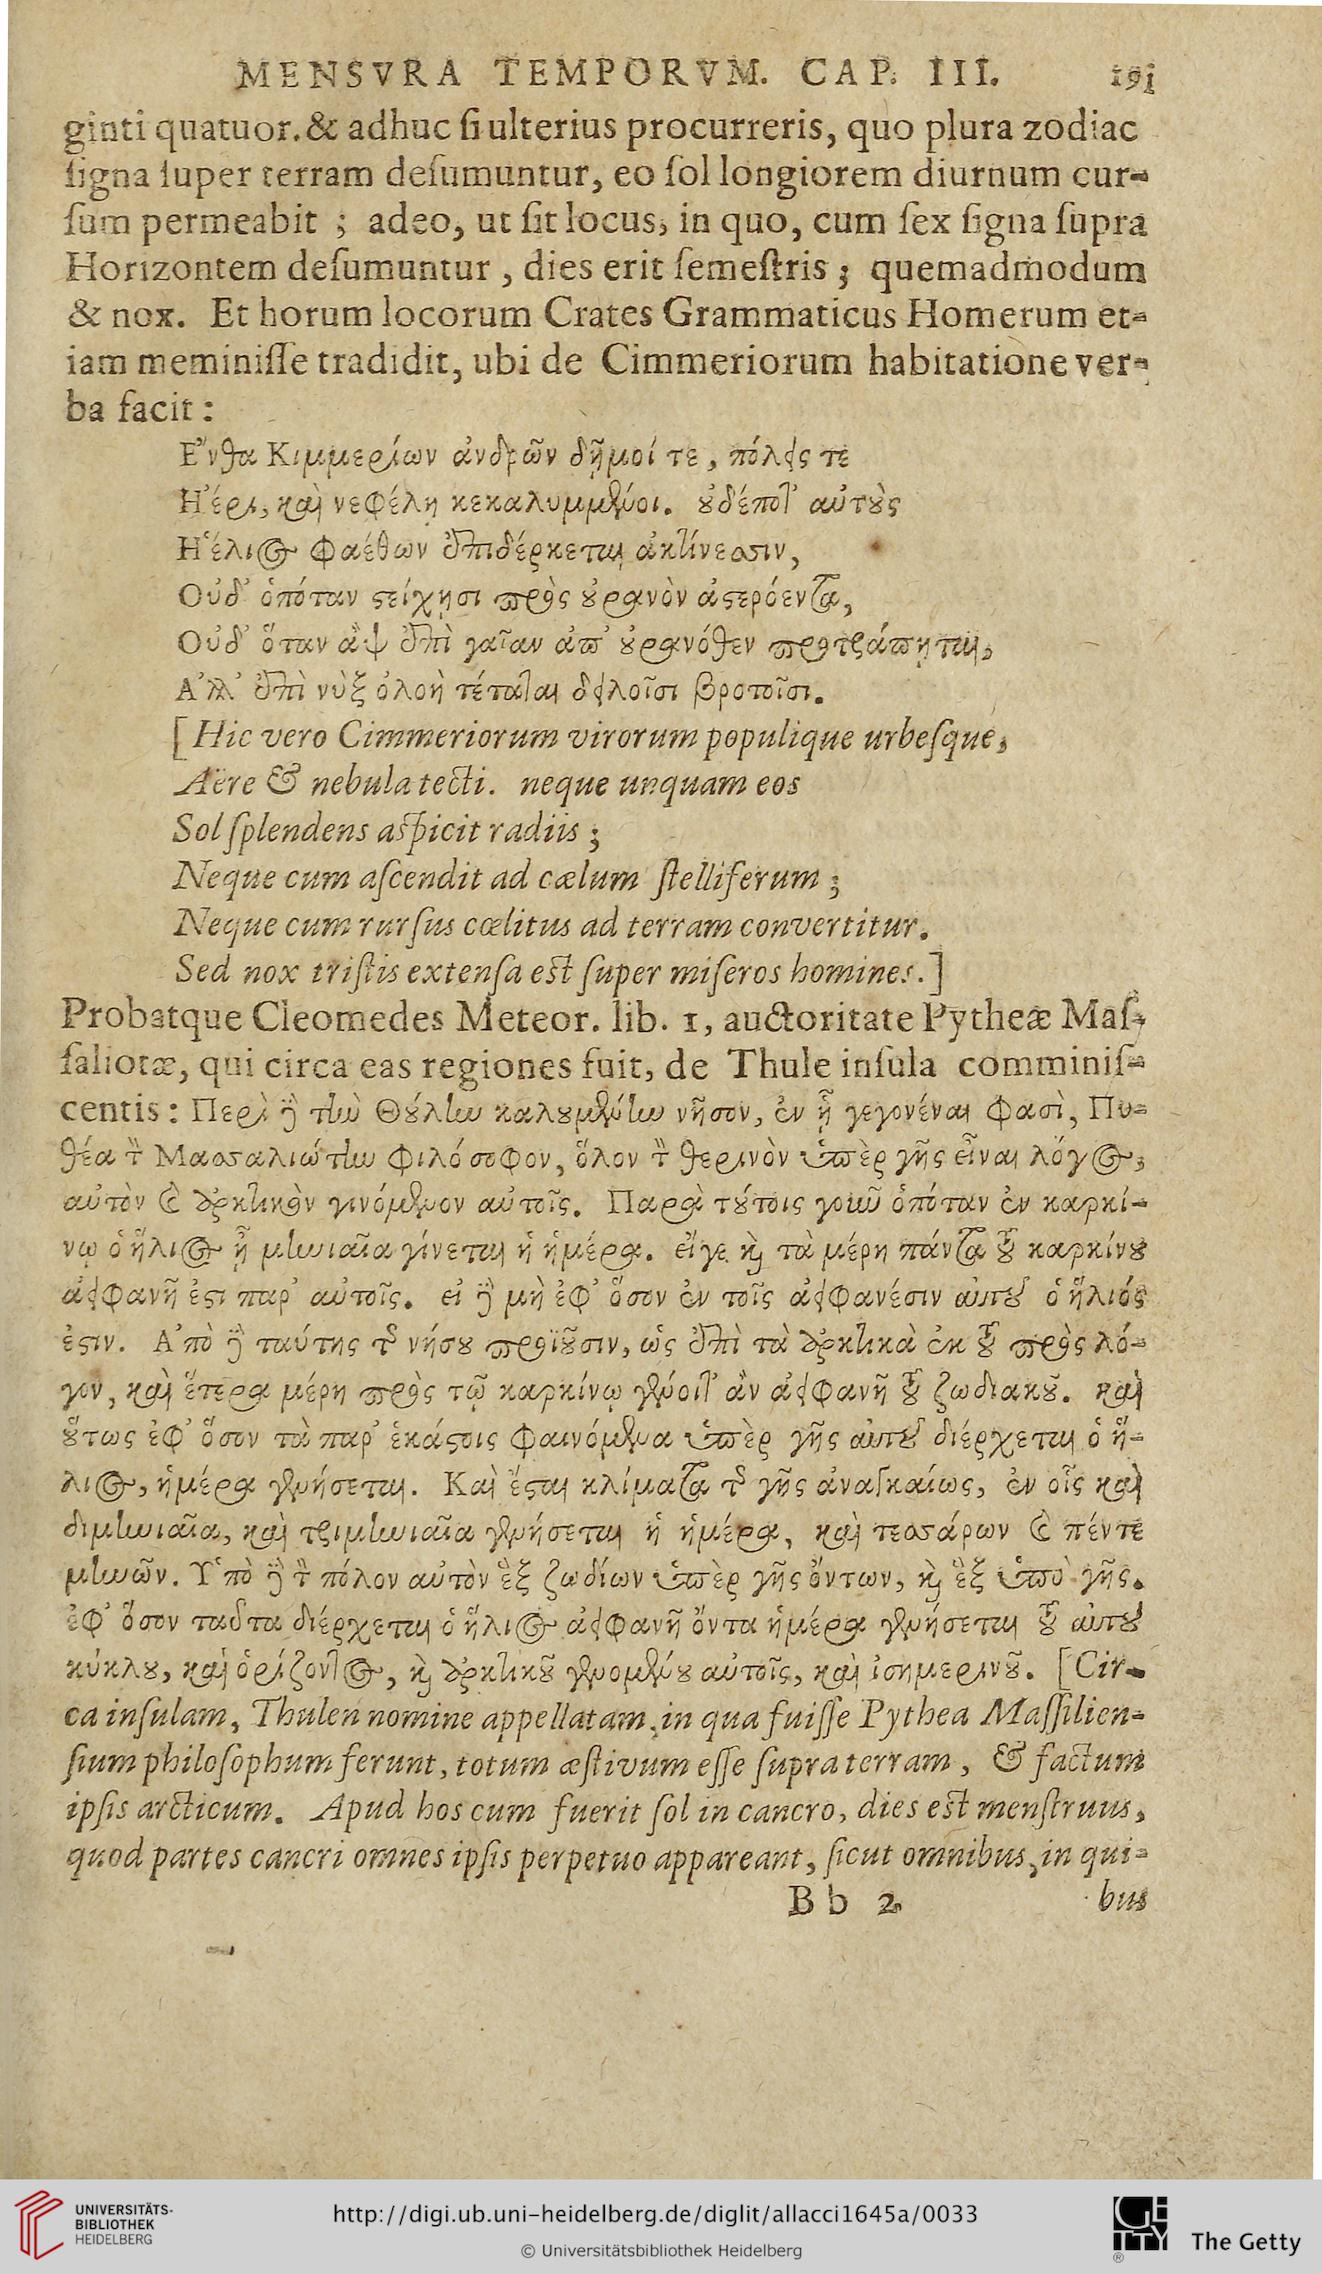 MENSVRA TEMPORVM. CAP. III. 191
ginti quatuor. & adhuc ſi ulterius procurreris, quo plura zodiac
ſigna ſuper terram deſumuntur, eo ſol longiorem diurnum cur-
ſum permeabit ; adeo, ut ſit locus, in quo, cum ſex ſigna ſupra
Horizontem deſumuntur , dies erit ſemeſtris ; quemadmodum
& nox. Et horum locorum Crates Grammaticus Homerum et-
iam meminiſſe tradidit, ubi de Cimmeriorum habitatione ver-
ba facit :
Ε῎νθα Κιμμερίων ἀνδρῶν δῆμοί τε , πόλεις τε
Η᾿έρι, καὶ νεφέλῃ κεκαλυμμένοι. ȣ̓δέποτ᾽ αὐτȣ̀ς
Η῾έλιος φαέθων ἐπιδέρκεται ἀκτίνεσσιν,
Οὐδ᾽ ὁπόταν ϛείχῃσι πρὸς ȣ̓ρανὸν ἀϛερόεντα,
Οὐδ᾽ ὅταν ἂψ ἐπὶ γαῖαν ἀπ᾽ ȣ̓ρανόθεν προτράπηται,
Α᾿λλ᾽ ἐπὶ νὺξ ὀλοὴ τέταται δειλοῖσι βροτοῖσι.
[ Hic vero Cimmeriorum virorum populique urbeſque,
Aëre & nebula tecti. neque unquam eos
Sol ſplendens aſpicit radiis ;
Neque cum aſcendit ad cælum ſtelliferum ;
Neque cum rurſus cœlitus ad terram convertitur.
Sed nox triſtis extenſa eſt ſuper miſeros homines. ]
Probatque Cleomedes Meteor. lib. 1, auctoritate Pytheæ Maſ-
ſaliotæ, qui circa eas regiones fuit, de Thule inſula comminiſ-
centis : Περὶ δὲ τὴν Θούλην καλȣμένην νῆσον, ἐν ᾗ γεγονέναι φασὶ, Πυ-
θέα τὸν Μασσαλιώτην φιλόσοφον, ὅλον τὸν θερινὸν ὑπὲρ γῆς εἶναι λόγος,
αὐτὸν καὶ ἀρκτικὸν γινόμενον αὐτοῖς. Παρὰ τȣ́τοις γοῦν ὁπόταν ἐν καρκί-
νῳ ὁ ἥλιος ᾖ μηνιαῖα γίνεται ἡ ἡμέρα. εἴγε καὶ τὰ μέρη πάντα τοῦ καρκίνȣ
ἀειφανῆ ἐϛι παρ᾽ αὐτοῖς. εἰ δὲ μὴ ἐφ᾽ ὅσον ἐν τοῖς ἀειφανέσιν αὐτοῦ ὁ ἥλιός
ἐϛιν. Α᾿πὸ δὲ ταύτης τῆς νήσȣ προϊȣ͂σιν, ὡς ἐπὶ τὰ ἀρκτικὰ ἐκ τοῦ πρὸς λό-
γον, καὶ ἕτερα μέρη πρὸς τῷ καρκίνῳ γένοιτ᾽ ἂν ἀειφανῆ τοῦ ζωδιακȣ͂. καὶ
ȣ̔́τως ἐφ᾽ ὅσον τὰ παρ᾽ ἑκάϛοις φαινόμενα ὑπὲρ γῆς αὐτοῦ διέρχεται ὁ ἥ-
λιος, ἡμέρα γενήσεται. Καὶ ἔϛαι κλίματα τῆς γῆς ἀναγκαίως, ἐν οἷς καὶ
διμηνιαῖα, καὶ τριμηνιαῖα γενήσεται ἡ ἡμέρα, καὶ τεσσάρων καὶ πέντε
μηνῶν. Υ῾πὸ δὲ τὸν πόλον αὐτὸν ἓξ ζωδίων ὑπὲρ γῆς ὄντων, καὶ ἓξ ὑπὸ γῆς.
ἐφ᾽ ὅσον ταῦτα διέρχεται ὁ ἥλιος ἀειφανῆ ὄντα ἡμέρα γενήσεται τοῦ αὐτοῦ
κύκλȣ, καὶ ὁρίζοντος, καὶ ἀρκτικȣ͂ γενομένȣ αὐτοῖς, καὶ ἰσημερινȣ͂. [ Cir-
ca inſulam, Thulen nomine appellatam, in qua fuiſſe Pythea Maſſilien-
ſium philoſophum ferunt, totum æſtivum eſſe ſupra terram , & factum
ipſis arcticum. Apud hos cum fuerit ſol in cancro, dies eſt menſtruus,
quod partes cancri omnes ipſis perpetuo appareant, ſicut omnibus, in qui-
B b 2 bus
UNIVERSITÄTS-
BIBLIOTHEK
HEIDELBERG
http://digi.ub.uni-heidelberg.de/diglit/allacci1645a/0033
© Universitätsbibliothek Heidelberg
GETTY
The Getty